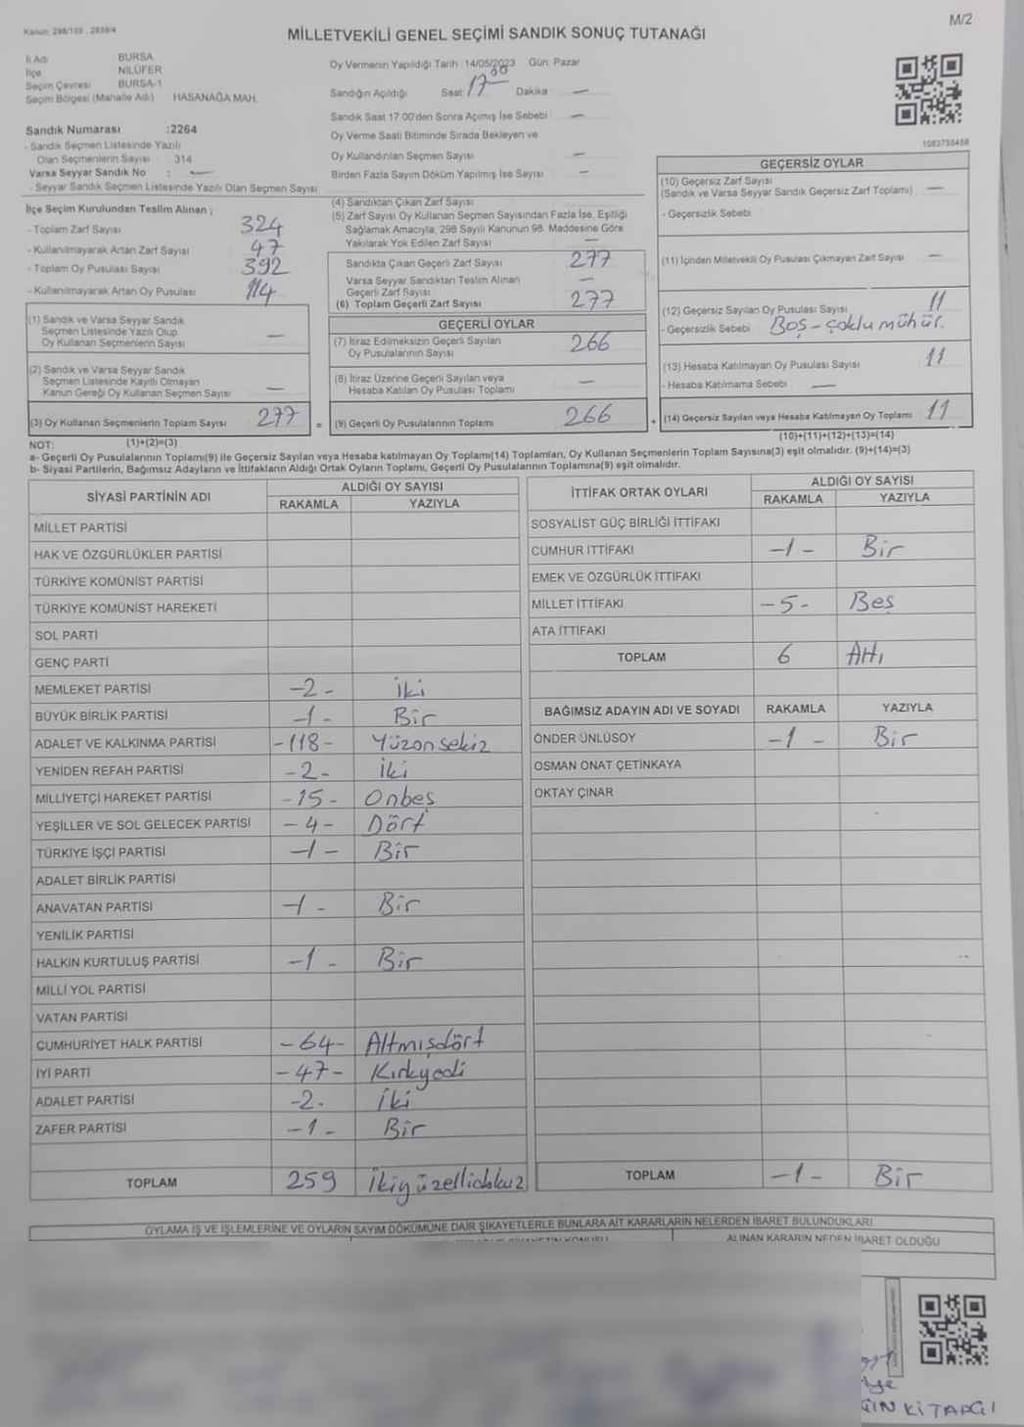 Kanun: 298/109 , 2839/4
M/2
MİLLETVEKİLİ GENEL SEÇİMİ SANDIK SONUÇ TUTANAĞI
İl Adı BURSA
İlçe NİLÜFER
Seçim Çevresi BURSA-1
Seçim Bölgesi (Mahalle Adı) HASANAĞA MAH.
Sandık Numarası :2264
- Sandık Seçmen Listesinde Yazılı
Olan Seçmenlerin Sayısı 314
Varsa Seyyar Sandık No : —
- Seyyar Sandık Seçmen Listesinde Yazılı Olan Seçmen Sayısı
Oy Vermenin Yapıldığı Tarih :14/05/2023 Gün: Pazar
Sandığın Açıldığı Saat 17 00 Dakika —
Sandık Saat 17.00'den Sonra Açılmış İse Sebebi —
Oy Verme Saati Bitiminde Sırada Bekleyen ve
Oy Kullandırılan Seçmen Sayısı —
Birden Fazla Sayım Döküm Yapılmış İse Sayısı —
1083758458
İlçe Seçim Kurulundan Teslim Alınan ;
- Toplam Zarf Sayısı 324
- Kullanılmayarak Artan Zarf Sayısı 47
- Toplam Oy Pusulası Sayısı 392
- Kullanılmayarak Artan Oy Pusulası 114
(1) Sandık ve Varsa Seyyar Sandık
Seçmen Listesinde Yazılı Olup
Oy Kullanan Seçmenlerin Sayısı —
(2) Sandık ve Varsa Seyyar Sandık
Seçmen Listesinde Kayıtlı Olmayan
Kanun Gereği Oy Kullanan Seçmen Sayısı —
(3) Oy Kullanan Seçmenlerin Toplam Sayısı 277
(1)+(2)=(3)
(4) Sandıktan Çıkan Zarf Sayısı
(5) Zarf Sayısı Oy Kullanan Seçmen Sayısından Fazla İse, Eşitliği
Sağlamak Amacıyla, 298 Sayılı Kanunun 98. Maddesine Göre
Yakılarak Yok Edilen Zarf Sayısı —
Sandıkta Çıkan Geçerli Zarf Sayısı 277
Varsa Seyyar Sandıktan Teslim Alınan
Geçerli Zarf Sayısı —
(6) Toplam Geçerli Zarf Sayısı 277
GEÇERLİ OYLAR
(7) İtiraz Edilmeksizin Geçerli Sayılan
Oy Pusulalarının Sayısı 266
(8) İtiraz Üzerine Geçerli Sayılan veya
Hesaba Katılan Oy Pusulası Toplamı —
= (9) Geçerli Oy Pusulalarının Toplamı 266
GEÇERSİZ OYLAR
(10) Geçersiz Zarf Sayısı
(Sandık ve Varsa Seyyar Sandık Geçersiz Zarf Toplamı) —
- Geçersizlik Sebebi
(11) İçinden Milletvekili Oy Pusulası Çıkmayan Zarf Sayısı —
(12) Geçersiz Sayılan Oy Pusulası Sayısı 11
- Geçersizlik Sebebi Boş-çoklu mühür.
(13) Hesaba Katılmayan Oy Pusulası Sayısı 11
- Hesaba Katılmama Sebebi —
+ (14) Geçersiz Sayılan veya Hesaba Katılmayan Oy Toplamı 11
(10)+(11)+(12)+(13)=(14)
NOT:
a- Geçerli Oy Pusulalarının Toplamı(9) ile Geçersiz Sayılan veya Hesaba katılmayan Oy Toplamı(14) Toplamları, Oy Kullanan Seçmenlerin Toplam Sayısına(3) eşit olmalıdır. (9)+(14)=(3)
b- Siyasi Partilerin, Bağımsız Adayların ve İttifakların Aldığı Ortak Oyların Toplamı, Geçerli Oy Pusulalarının Toplamına(9) eşit olmalıdır.
SİYASİ PARTİNİN ADI ALDIĞI OY SAYISI
RAKAMLA YAZIYLA
MİLLET PARTİSİ
HAK VE ÖZGÜRLÜKLER PARTİSİ
TÜRKİYE KOMÜNİST PARTİSİ
TÜRKİYE KOMÜNİST HAREKETİ
SOL PARTİ
GENÇ PARTİ
MEMLEKET PARTİSİ -2- İki
BÜYÜK BİRLİK PARTİSİ -1- Bir
ADALET VE KALKINMA PARTİSİ -118- Yüzonsekiz
YENİDEN REFAH PARTİSİ -2- İki
MİLLİYETÇİ HAREKET PARTİSİ -15- Onbeş
YEŞİLLER VE SOL GELECEK PARTİSİ -4- Dört
TÜRKİYE İŞÇİ PARTİSİ -1- Bir
ADALET BİRLİK PARTİSİ
ANAVATAN PARTİSİ -1- Bir
YENİLİK PARTİSİ
HALKIN KURTULUŞ PARTİSİ -1- Bir
MİLLİ YOL PARTİSİ
VATAN PARTİSİ
CUMHURİYET HALK PARTİSİ -64- Altmışdört
İYİ PARTİ -47- Kırkyedi
ADALET PARTİSİ -2- İki
ZAFER PARTİSİ -1- Bir
TOPLAM 259 İkiyüzellidokuz
İTTİFAK ORTAK OYLARI ALDIĞI OY SAYISI
RAKAMLA YAZIYLA
SOSYALİST GÜÇ BİRLİĞİ İTTİFAKI
CUMHUR İTTİFAKI -1- Bir
EMEK VE ÖZGÜRLÜK İTTİFAKI
MİLLET İTTİFAKI -5- Beş
ATA İTTİFAKI
TOPLAM 6 Altı
BAĞIMSIZ ADAYIN ADI VE SOYADI RAKAMLA YAZIYLA
ÖNDER ÜNLÜSOY -1- Bir
OSMAN ONAT ÇETİNKAYA
OKTAY ÇINAR
TOPLAM -1- Bir
OYLAMA İŞ VE İŞLEMLERİNE VE OYLARIN SAYIM DÖKÜMÜNE DAİR ŞİKAYETLERLE BUNLARA AİT KARARLARIN NELERDEN İBARET BULUNDUKLARI
ALINAN KARARIN NEDEN İBARET OLDUĞU